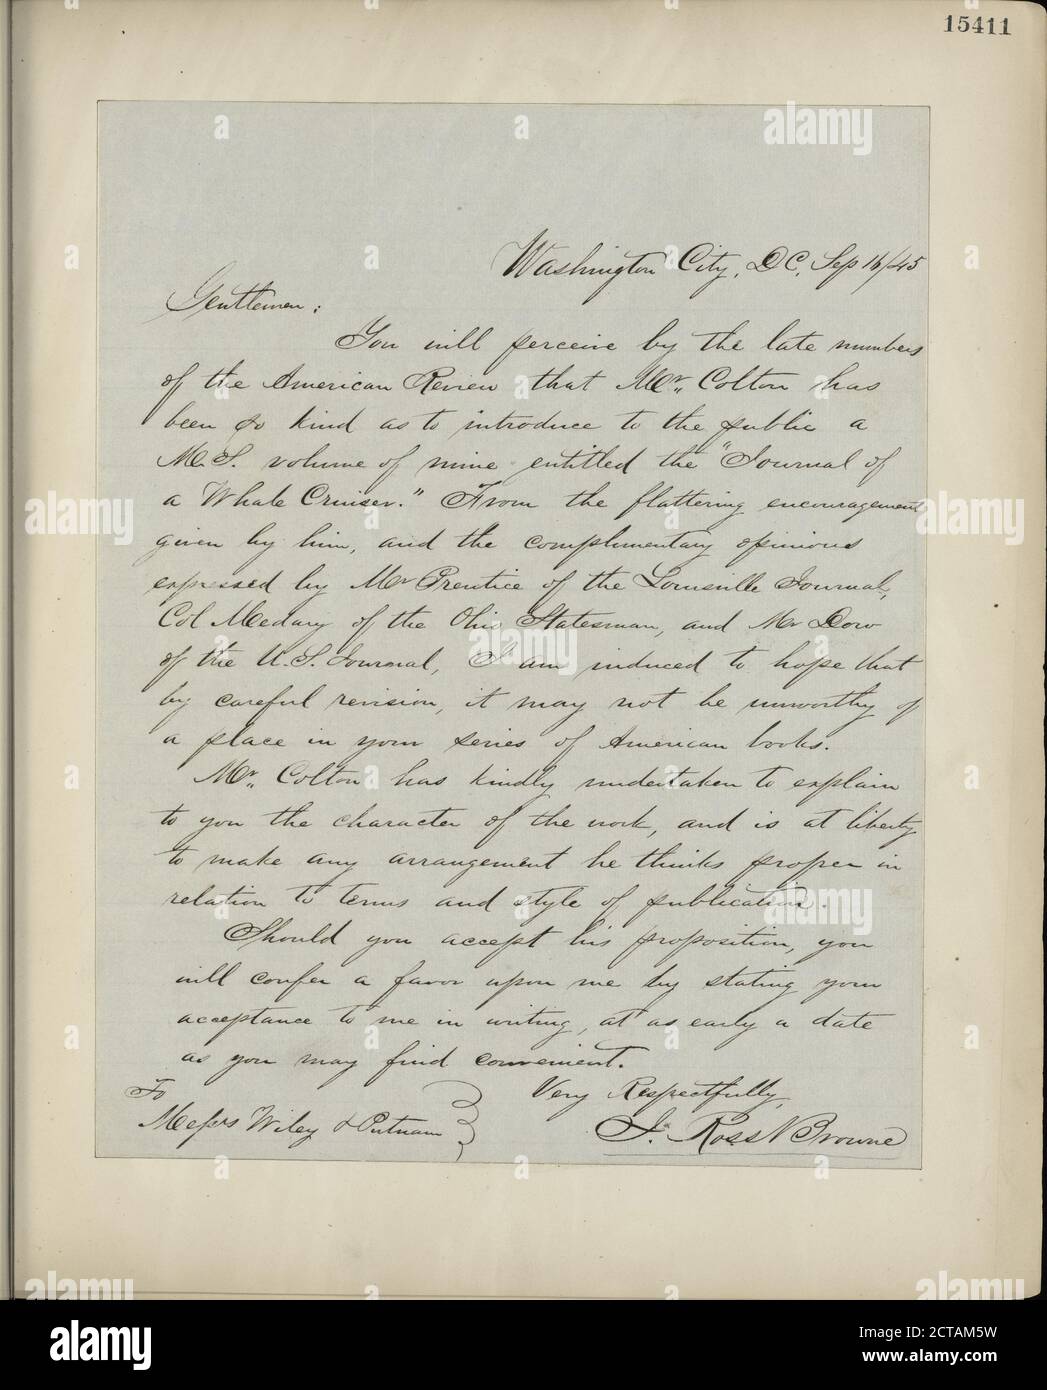 15411
Washington City, DC, Sep 16/45
Gentlemen:
You will perceive by the late numbers
of the American Review that Mr. Colton has
been so kind as to introduce to the public a
M.S. volume of mine entitled the "Journal of
a Whale Cruiser." From the flattering encouragement
given by him, and the complimentary opinions
expressed by Mr Prentice of the Louisville Journal,
Col Medary of the Ohio Statesman, and Mr Dow
of the U.S. Journal, I am induced to hope that
by careful revision, it may not be unworthy of
a place in your series of American books.
Mr. Colton has kindly undertaken to explain
to you the character of the work, and is at liberty
to make any arrangement he thinks proper in
relation to terms and style of publication.
Should you accept his proposition, you
will confer a favor upon me by stating your
acceptance to me in writing, at as early a date
as you may find convenient.
Very Respectfully,
J. Ross Browne
To
Messrs Wiley & Putnam
alamy
Image ID: 2CTAM5W
www.alamy.com